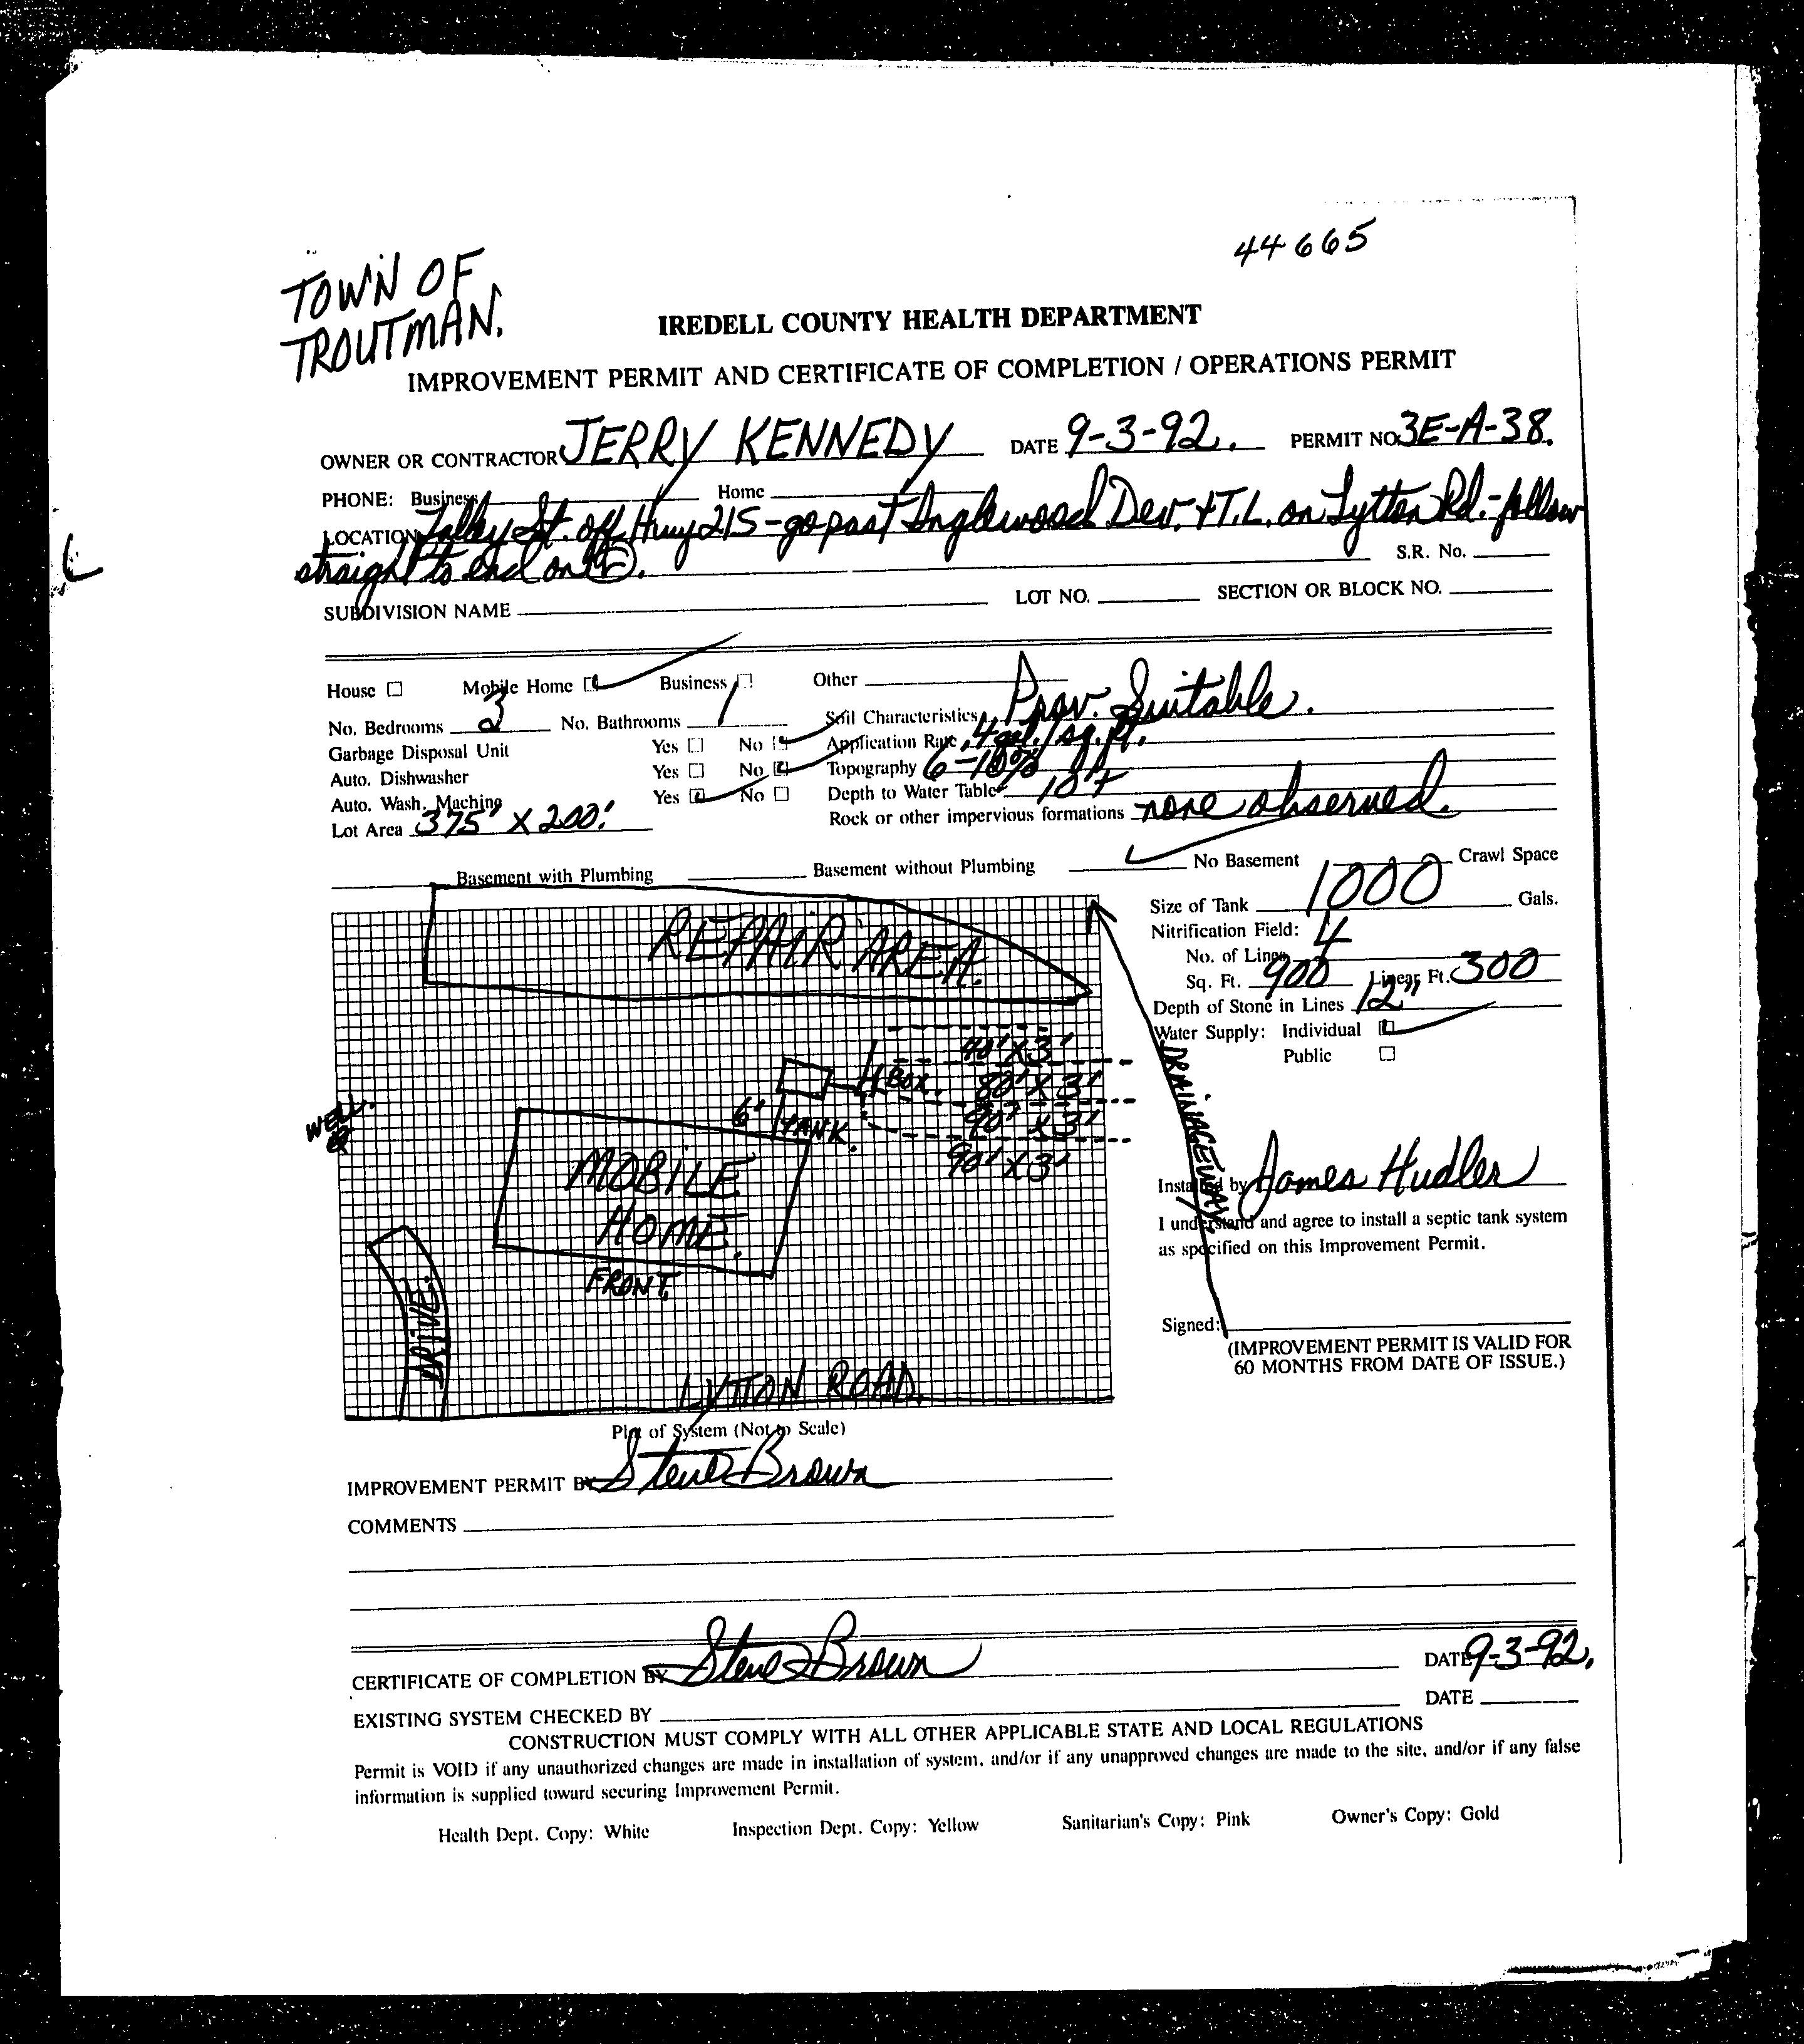 44665
TOWN OF
TROUTMAN.
IREDELL COUNTY HEALTH DEPARTMENT
IMPROVEMENT PERMIT AND CERTIFICATE OF COMPLETION / OPERATIONS PERMIT
OWNER OR CONTRACTOR JERRY KENNEDY DATE 9-3-92. PERMIT NO. 3E-A-38.
PHONE: Business Home
LOCATION Talley St. off Hwy 215 - go past Inglewood Dev. + T.L. on Lytton Rd. - follow
straight to end on
S.R. No.
SUBDIVISION NAME LOT NO. SECTION OR BLOCK NO.
House Mobile Home Business Other
No. Bedrooms 3 No. Bathrooms 1 Soil Characteristics Prov. Suitable.
Garbage Disposal Unit Yes No Application Rate .4 gal./sq.ft.
Auto. Dishwasher Yes No Topography 6-10%
Auto. Wash. Machine Yes No Depth to Water Table 10'+
Lot Area 375' X 200' Rock or other impervious formations none observed.
Basement with Plumbing Basement without Plumbing No Basement Crawl Space
Size of Tank 1000 Gals.
Nitrification Field:
No. of Lines 4
Sq. Ft. 900 Linear Ft. 300
Depth of Stone in Lines 12"
Water Supply: Individual
Public
REPAIR AREA.
40' X 3'
BOX. 80' X 3'
6' TANK. 90' X 3'
90' X 3'
WELL.
MOBILE
HOME.
FRONT.
DRIVE.
LYTTON ROAD.
DRAINAGEWAY.
Installed by James Hudler
I understand and agree to install a septic tank system
as specified on this Improvement Permit.
Signed:
(IMPROVEMENT PERMIT IS VALID FOR
60 MONTHS FROM DATE OF ISSUE.)
Plot of System (Not to Scale)
IMPROVEMENT PERMIT BY Steve Brown
COMMENTS
CERTIFICATE OF COMPLETION BY Steve Brown DATE 9-3-92.
EXISTING SYSTEM CHECKED BY DATE
CONSTRUCTION MUST COMPLY WITH ALL OTHER APPLICABLE STATE AND LOCAL REGULATIONS
Permit is VOID if any unauthorized changes are made in installation of system, and/or if any unapproved changes are made to the site, and/or if any false
information is supplied toward securing Improvement Permit.
Health Dept. Copy: White Inspection Dept. Copy: Yellow Sanitarian's Copy: Pink Owner's Copy: Gold